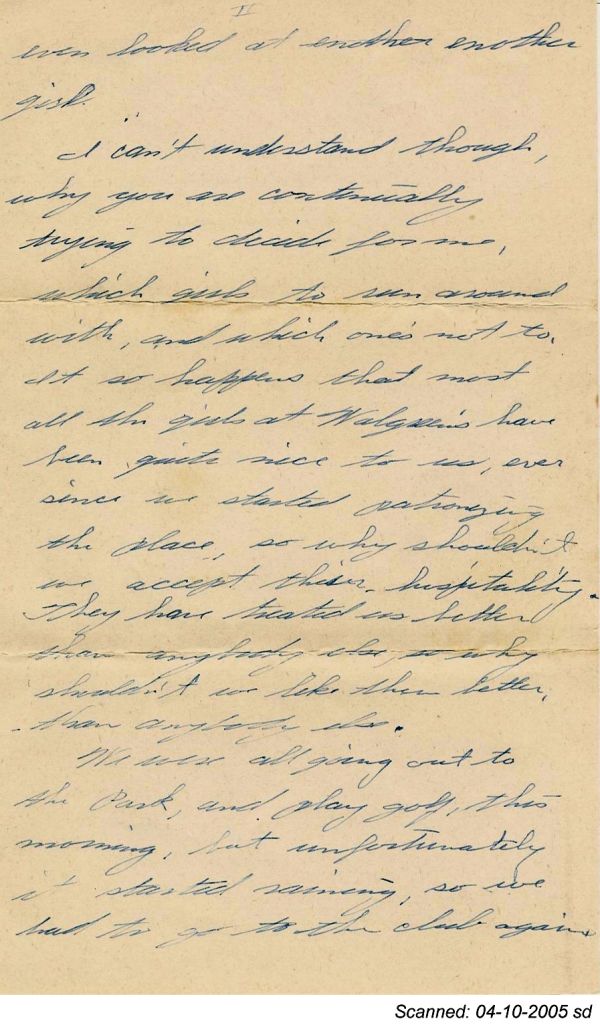 II
even looked at another another
girl.
I can't understand though,
why you are continually
trying to decide for me,
which girls to run around
with, and which one's not to.
It so happens that most
all the girls at Walgreen's have
been quite nice to us, ever
since we started patronizing
the place, so why shouldn't
we accept their hospitality.
They have treated us better
than anybody else, so why
shouldn't we like them better,
than anybody else.
We were all going out to
the Park, and play golf, this
morning, but unfortunately
it started raining, so we
had to go to the club again,
Scanned: 04-10-2005 sd